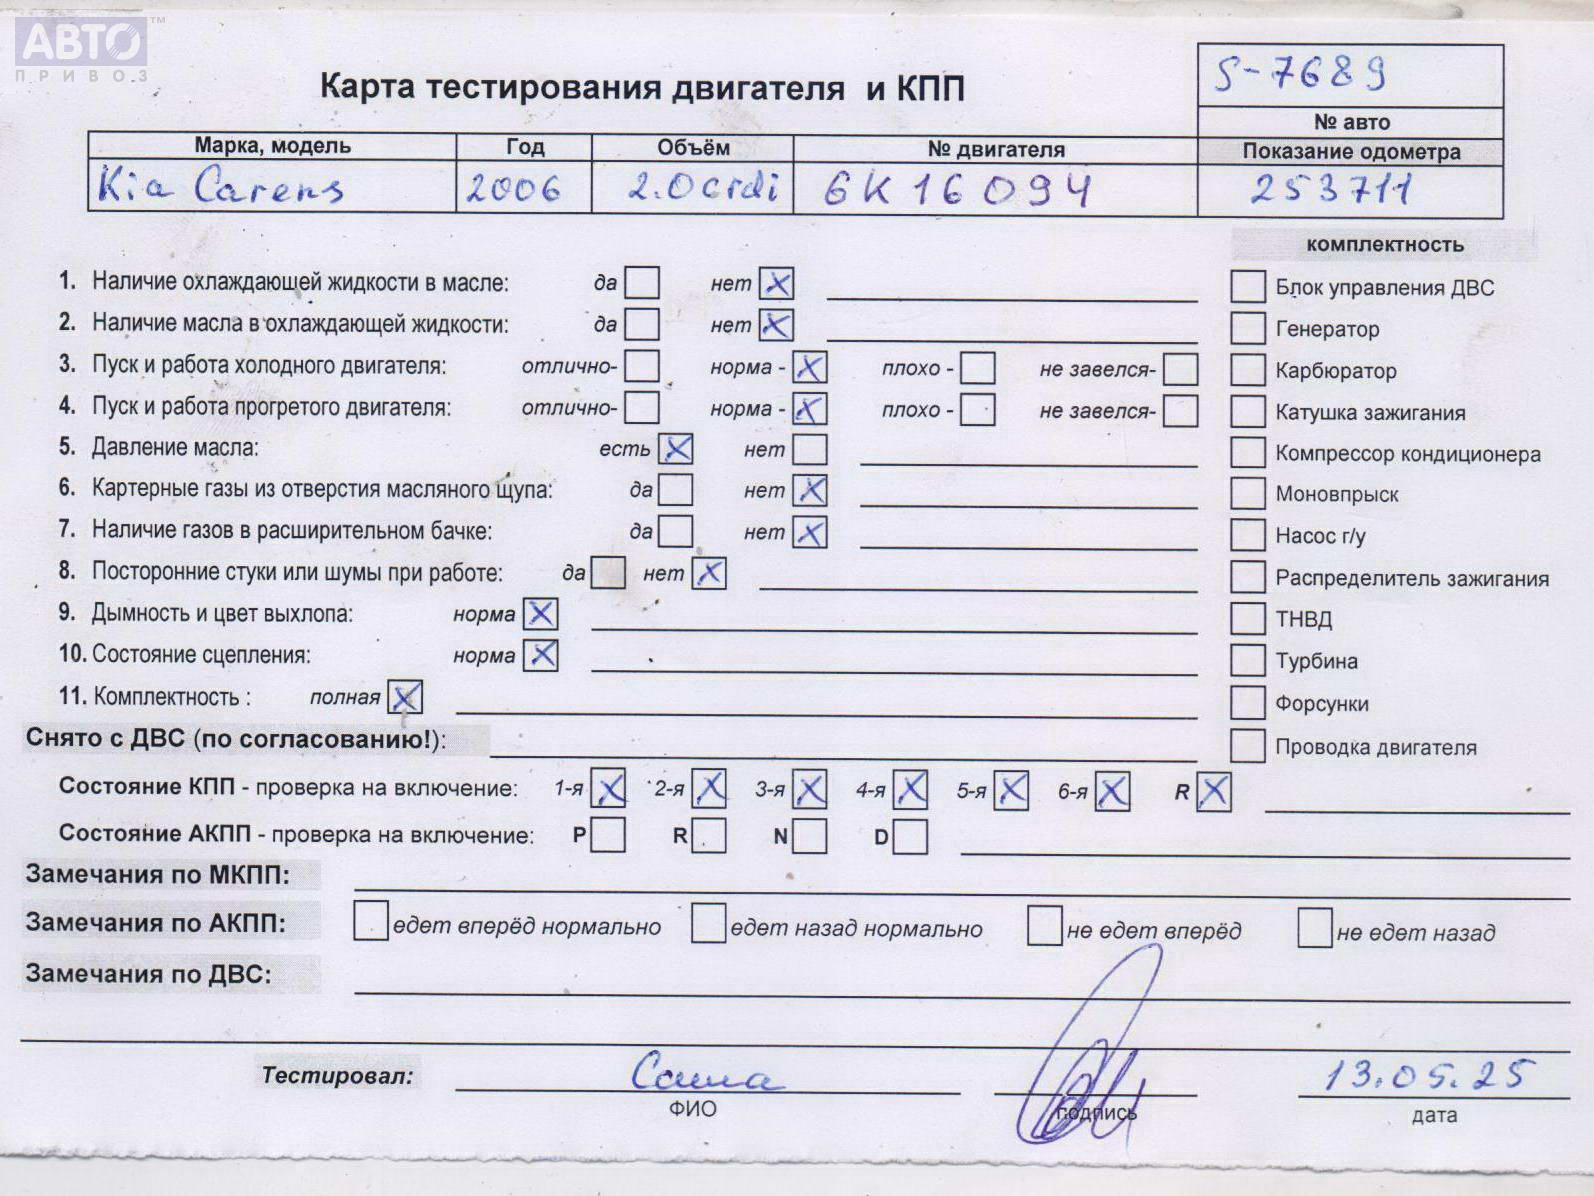 АВТО™
ПРИВОЗ
Карта тестирования двигателя и КПП
S-7689
№ авто
Марка, модель Год Объём № двигателя Показание одометра
Kia Carens 2006 2.0crdi 6K16094 253711
комплектность
1. Наличие охлаждающей жидкости в масле: да нет X
Блок управления ДВС
2. Наличие масла в охлаждающей жидкости: да нет X
Генератор
3. Пуск и работа холодного двигателя: отлично- норма - X плохо - не завелся-
Карбюратор
4. Пуск и работа прогретого двигателя: отлично- норма - X плохо - не завелся-
Катушка зажигания
5. Давление масла: есть X нет
Компрессор кондиционера
6. Картерные газы из отверстия масляного щупа: да нет X
Моновпрыск
7. Наличие газов в расширительном бачке: да нет X
Насос г/у
8. Посторонние стуки или шумы при работе: да нет X
Распределитель зажигания
9. Дымность и цвет выхлопа: норма X
ТНВД
10. Состояние сцепления: норма X
Турбина
11. Комплектность : полная X
Форсунки
Снято с ДВС (по согласованию!):
Проводка двигателя
Состояние КПП - проверка на включение: 1-я X 2-я X 3-я X 4-я X 5-я X 6-я X R X
Состояние АКПП - проверка на включение: P R N D
Замечания по МКПП:
Замечания по АКПП: едет вперёд нормально едет назад нормально не едет вперёд не едет назад
Замечания по ДВС:
Тестировал: Саша 13.05.25
ФИО подпись дата